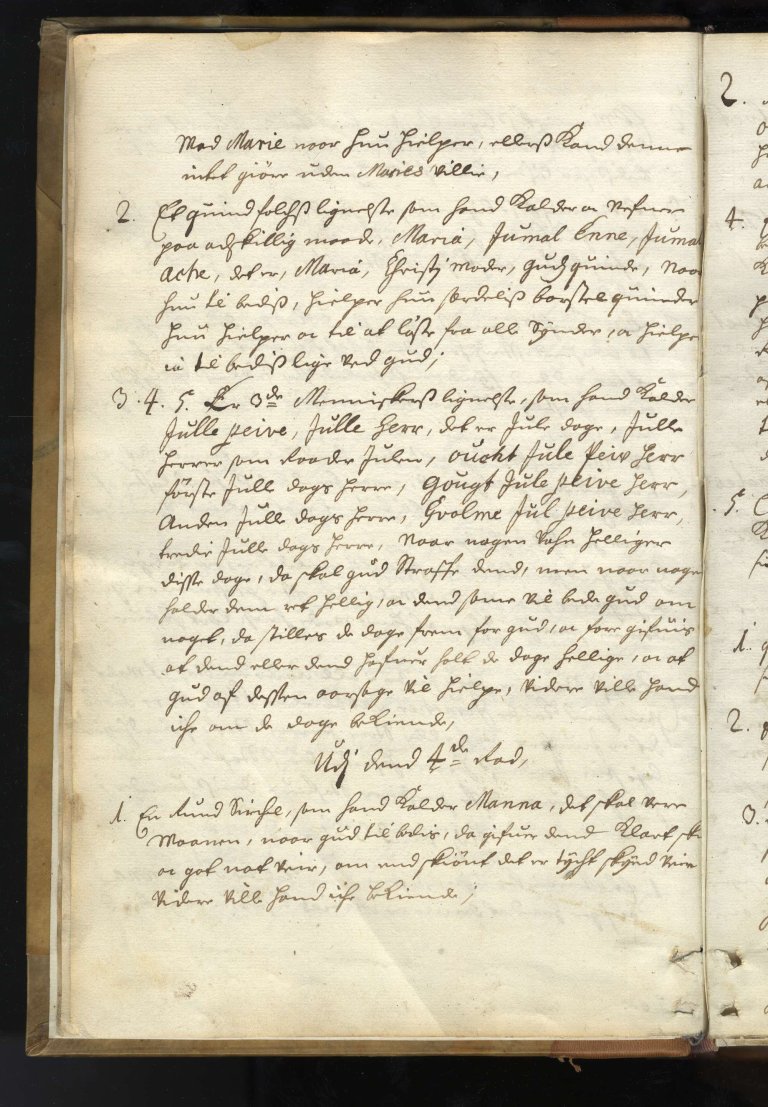 Med Marie naar hun hielper, ellerß kand denne
intet giöre uden Maries villie,
2. Et quindfolchß lignelße som hand kalder oc nefner
paa adskillig maade, Maria, Jumal Enne, Juma
Ache, det er, Maria, Christj moder, gudß quinde, Naar
hun til bediß, hielper hun særdeliß barsel quinder
hun hielper oc til at löse fra alle Synder, oc hielpe
til bediß lige ved gud;
3. 4. 5. Er 3de Menniskerß lignelße, som hand kalder
Julle peive, Julle Herr, det er Jule dage, Julle
herrer som raader Julen, oucht Jule Peiv Herr
förste Julle dags herre, Gougt Jule peive Herr,
Anden Julle dags herre, Gvolme Jul peive Herr,
tredie Julle dags herre, Naar nogen Vahn helliger
disse dage, da skal gud straffe dend, men naar noge
holder dem ret hellig, oc dend samme vil bede gud om
noget, da stilles de dage frem for gud, oc fore gifuis
at dend eller dend hafuer holt de dage hellige, oc at
gud af dessen aarsage vil hielpe, videre ville hand
iche om de dage bekiende,
Udj dend 4de Rad,
1. En Rund Circhel, som hand kalder Manna, det skal vere
Maanen, naar gud til bedis, da gifuer dend klart sk
oc got nat veir, om end skiönt det er tycht skyed veir
videre ville hand iche bekiende;
2.
4.
5.
1.
2.
3.